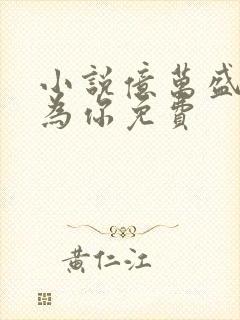 小說億萬盛
為你免費
黃仁江